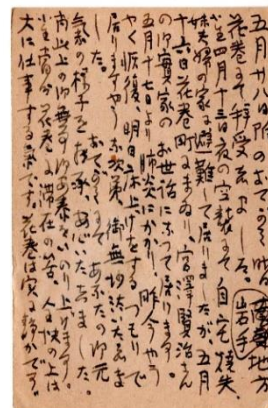 五月八日附のおてがミ地方
岩手
花巻にて拝受しました。小
生四月十三日夜の空襲にて自宅焼失、
の家に避難して居りましたが、五月
十六日花巻町にまゐり、宮澤賢治さん
の御実家のお世話になつて居ります。
五月十七日より肺炎にかかり、昨今やう
やく恢復、明日床上げをするつもりで
居ります。やう次第、御無沙汰いたしま
した。おてがミにてあなたの御元
気な様子を拝承、安心いたしました。
の御無事をいのり上げます。
小生当分花巻に滞在の筈、快の上は
大に仕事する気です。花巻は実に静かです。